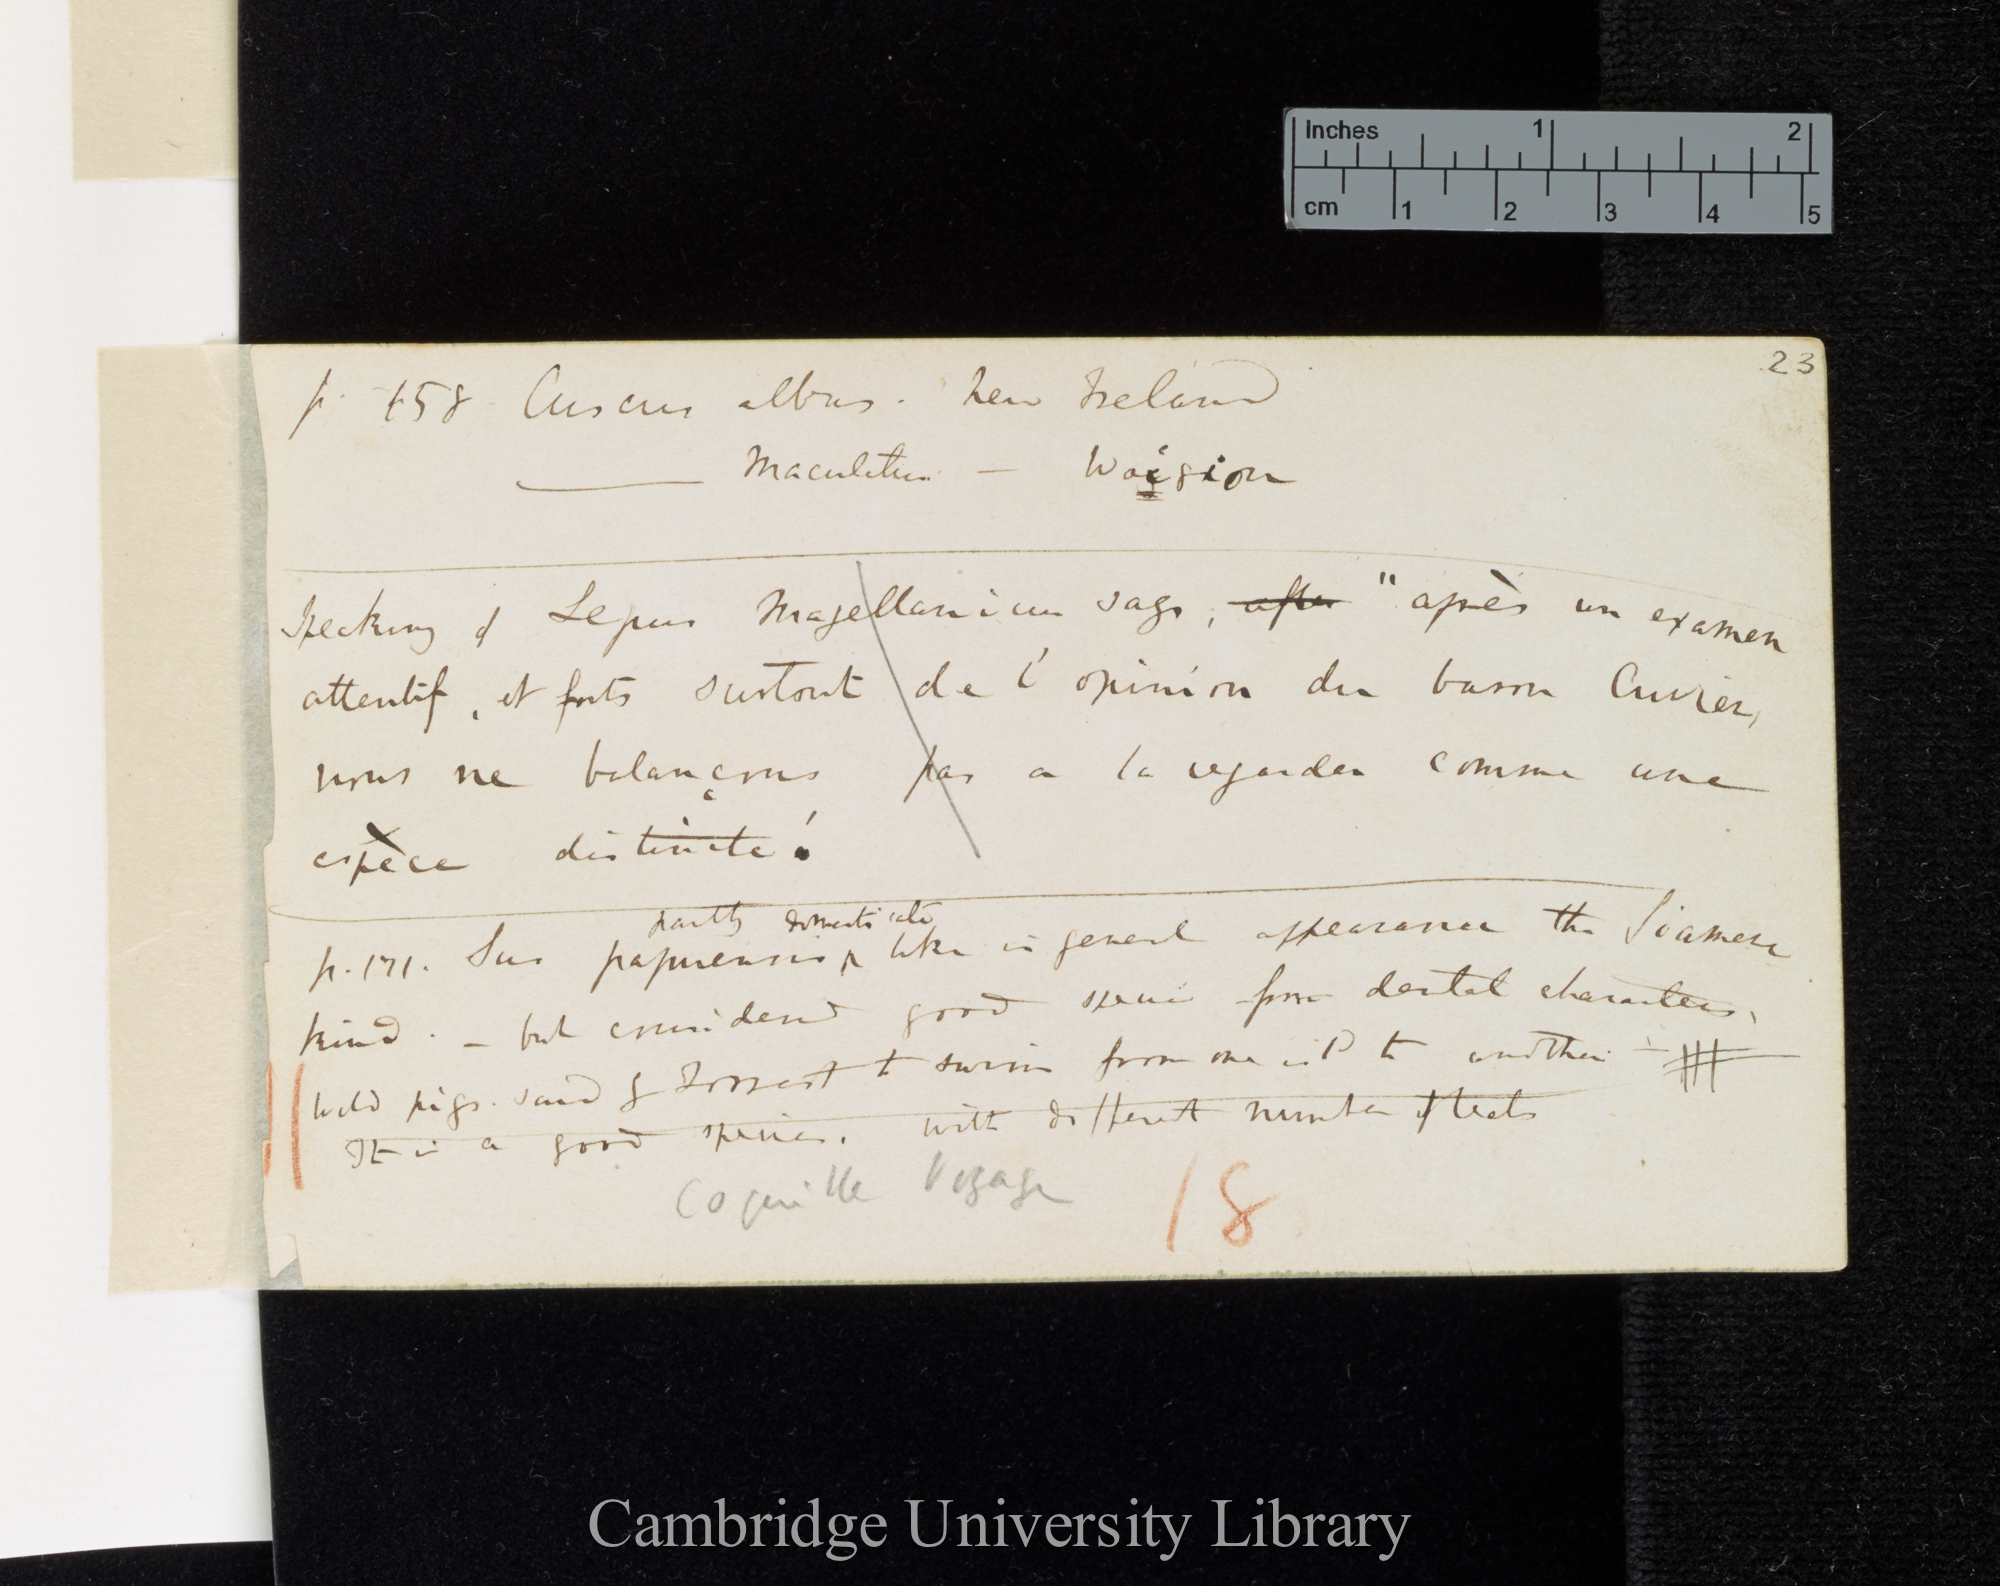 Inches 1 2
cm 1 2 3 4 5
23
p. 158 Cuscus albus. New Ireland
——— Maculatus — Waigiou
Specking of Lepus Magellanicus says, after "après un examen
attentif, et forts surtout de l'opinion du baron Cuvier,
nous ne balançons pas a la regarder comme une
espèce distincte!
partly domesticated
p. 171. Sus papuensis, like in general appearance the Siamese
kind. — but considered good species from dental characters.
Wild pigs. said by Forrest to swim from one isld to another —
It is a good species. with different number of teats
Coquille Voyage
18
Cambridge University Library